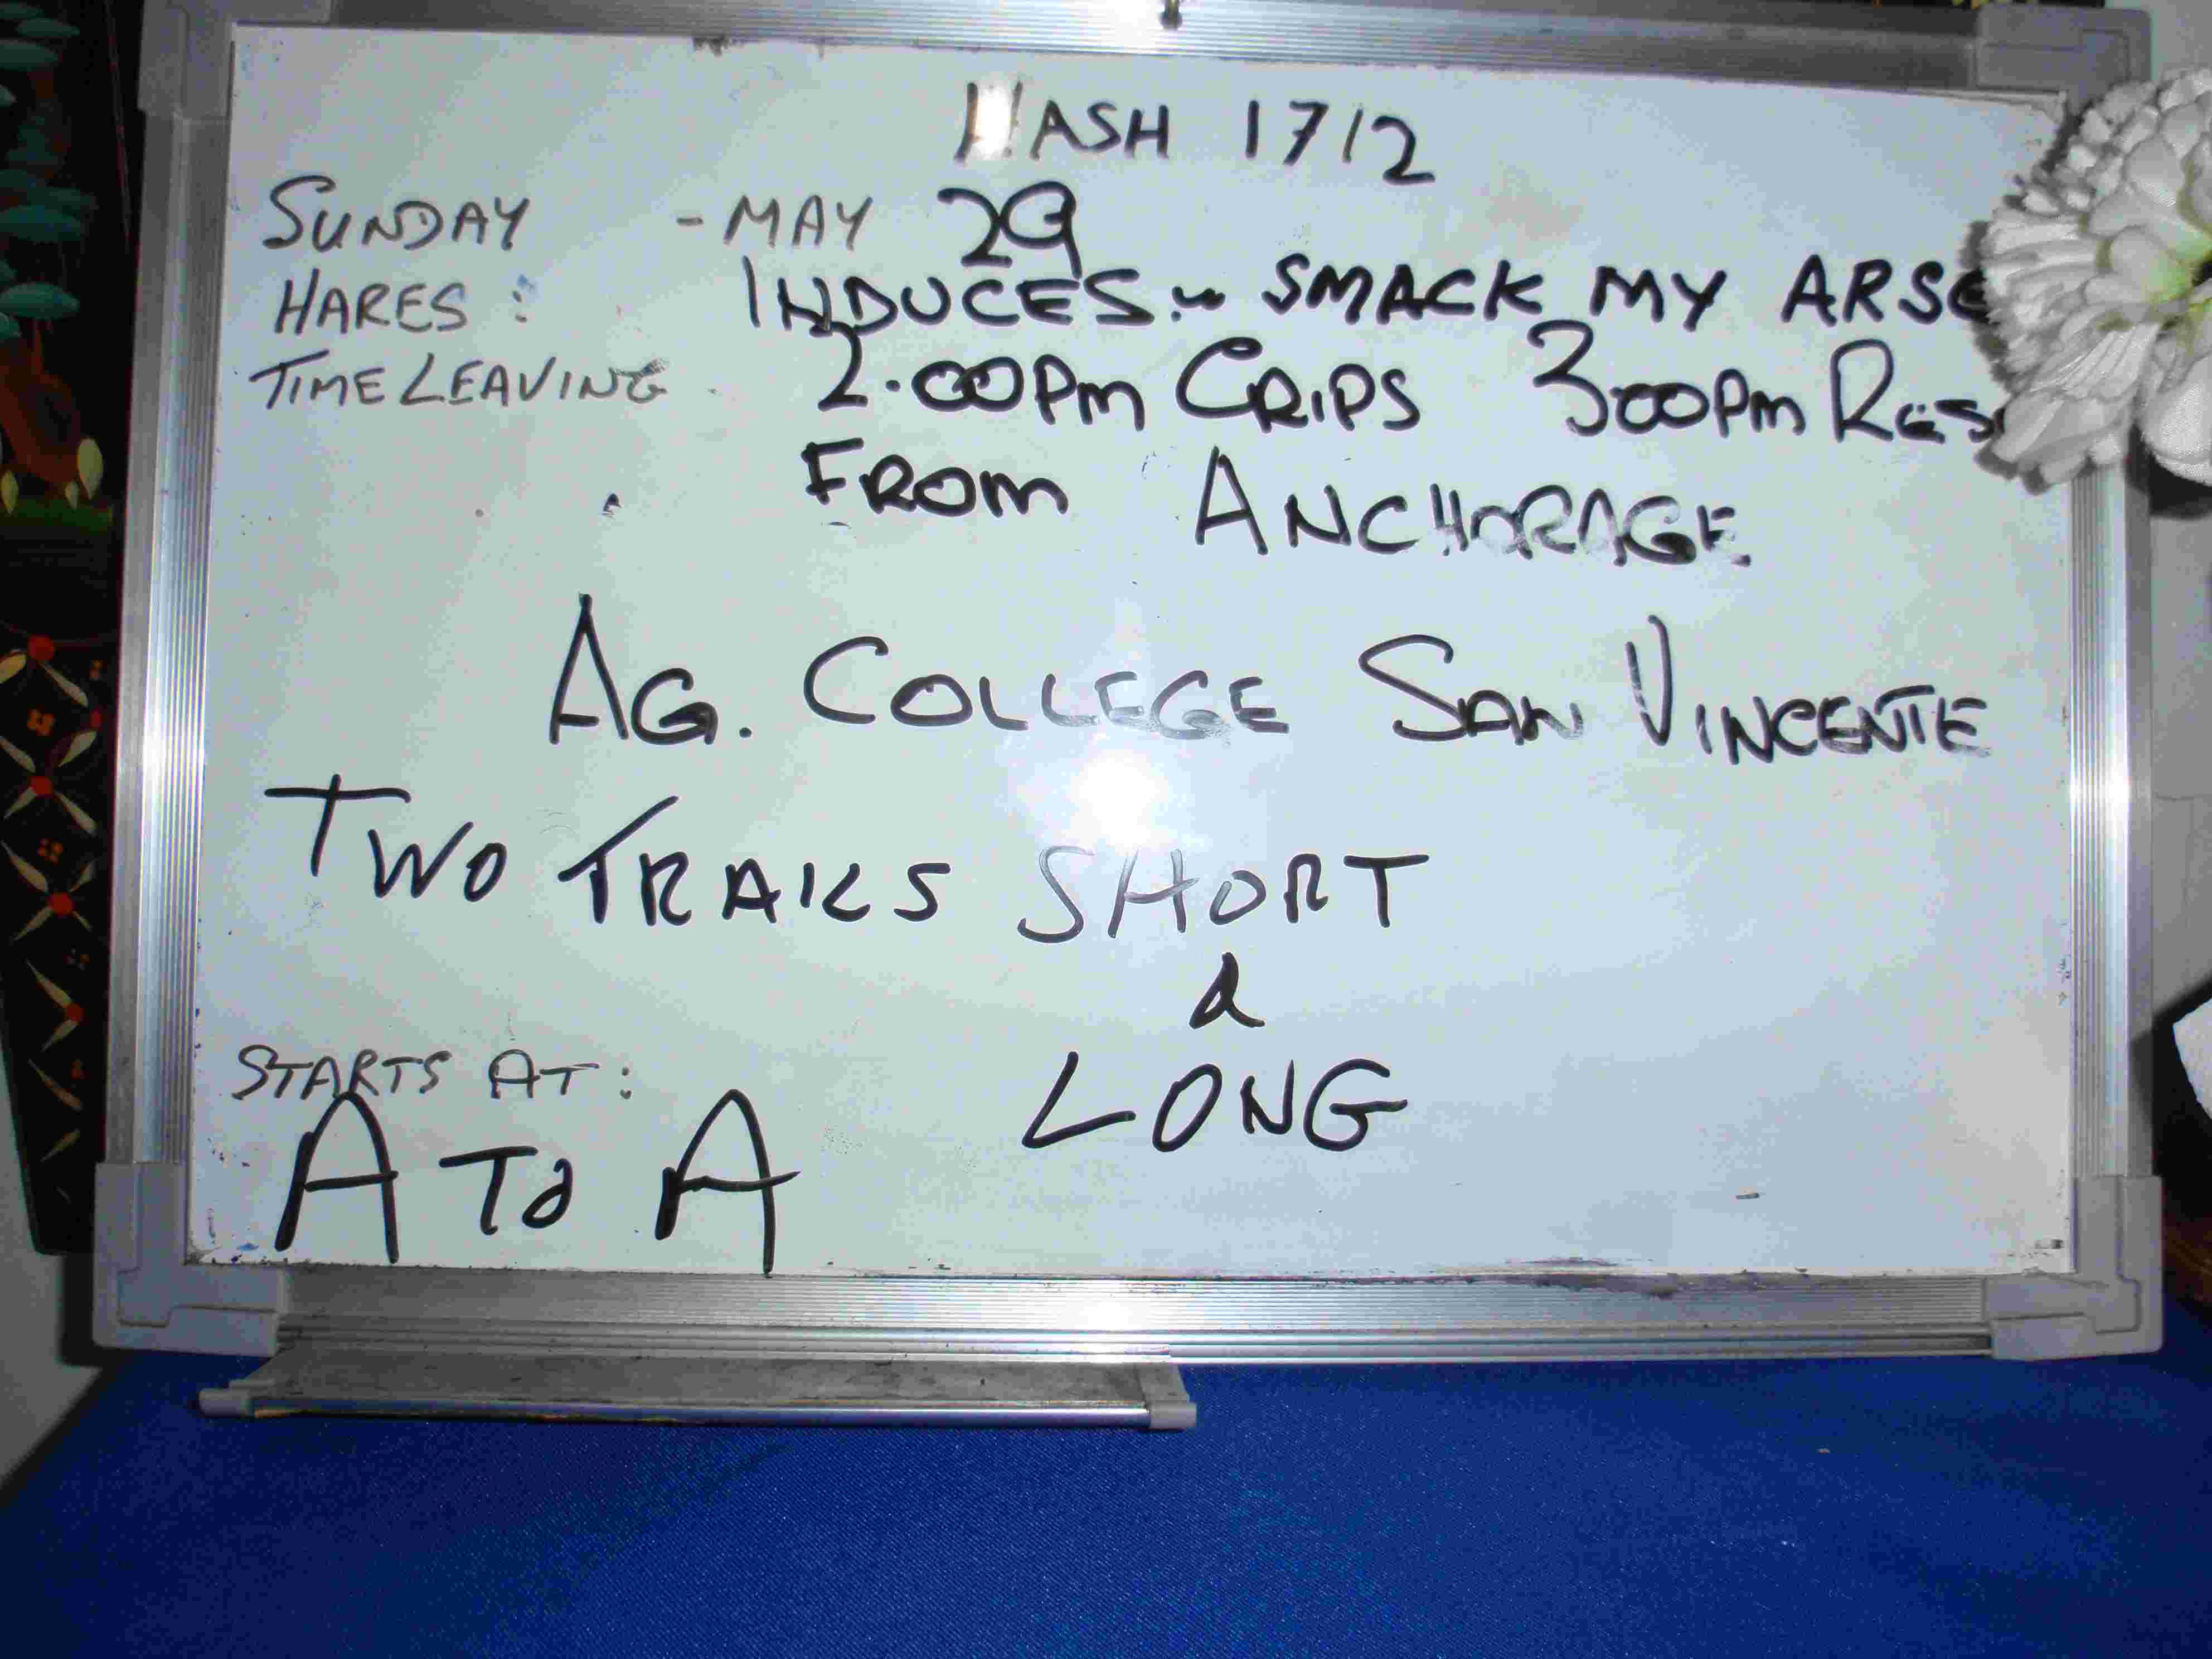 HASH 1712
SUNDAY - MAY 29
HARES: INDUCES ~ SMACK MY ARSE
TIME LEAVING 2.00PM CRIPS 300PM RES
FROM ANCHORAGE
AG. COLLEGE SAN VINCENTE
TWO TRAILS SHORT
&
LONG
STARTS AT:
A TO A